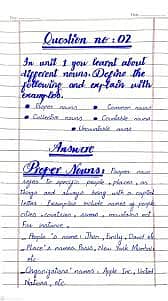 Question no: 02
In unit 1 you learnt about
different nouns. Define the
following and explain with
examples.
• Proper nouns • Common nouns
• Collective nouns • Countable nouns
• Uncountable nouns
Answer
Proper Nouns: Proper nouns
refers to specific people, places, or
things and always being with a capital
letter. Examples include names of people
cities, countries,
For instance,
People's name: Emily, David etc
Place's names: Paris, New York, Mumbai
etc
Organizations' names: Apple Inc, United
Nations, etc